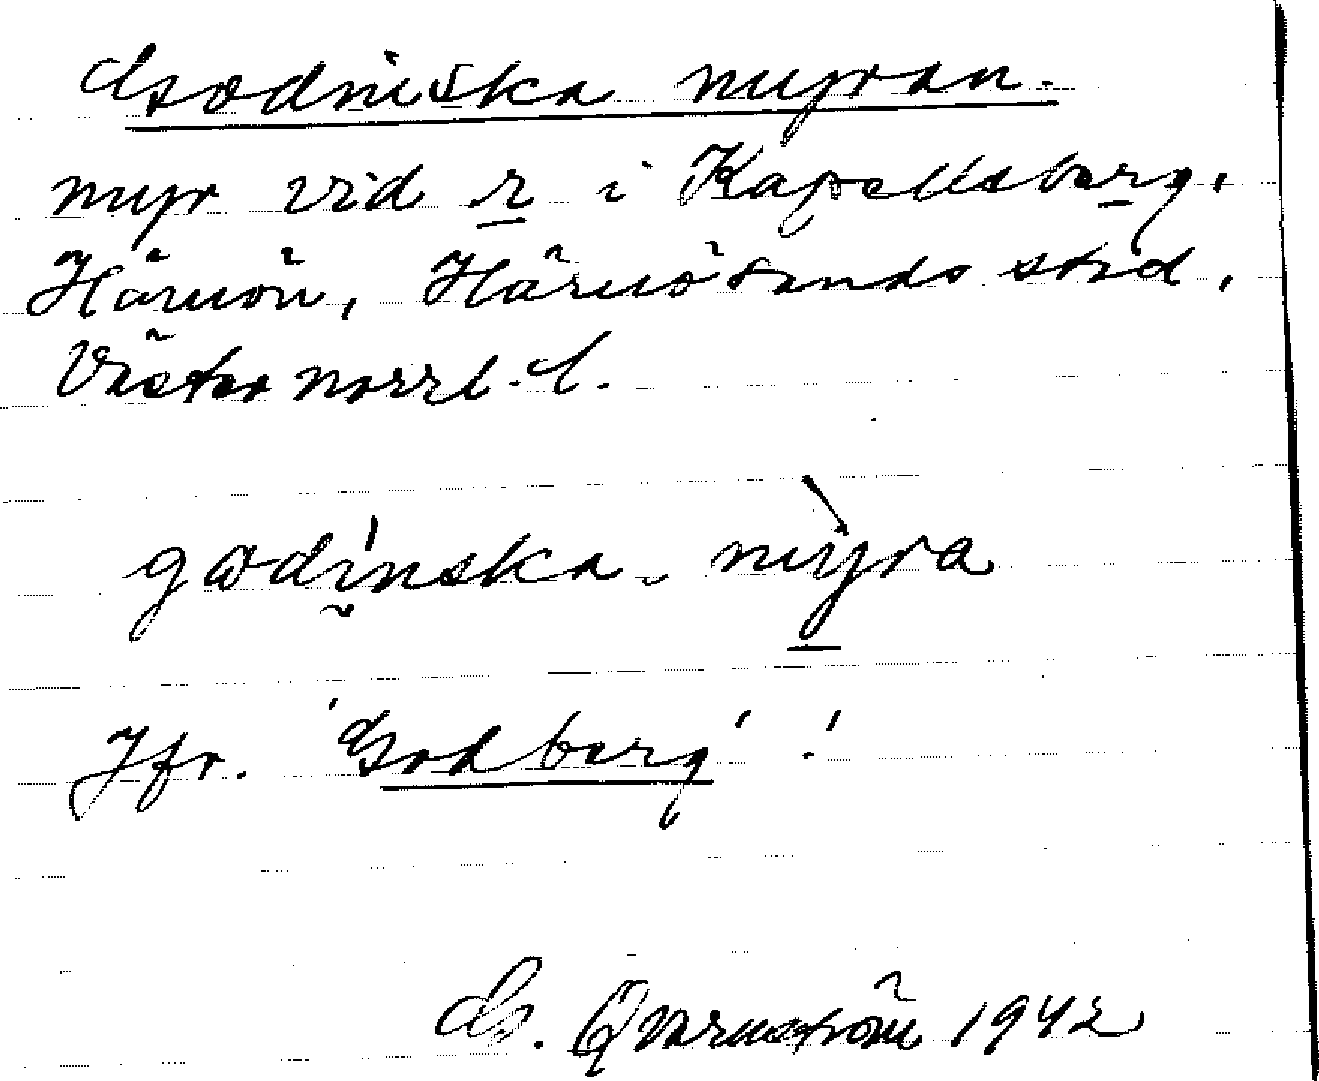 Godniska myran.
myr vid r i Kapellsberg,
Härnön, Härnösands stad,
Västernorrl. l.
godinska - myra
Jfr. 'Godberg'!
G. Qvarnström 1942